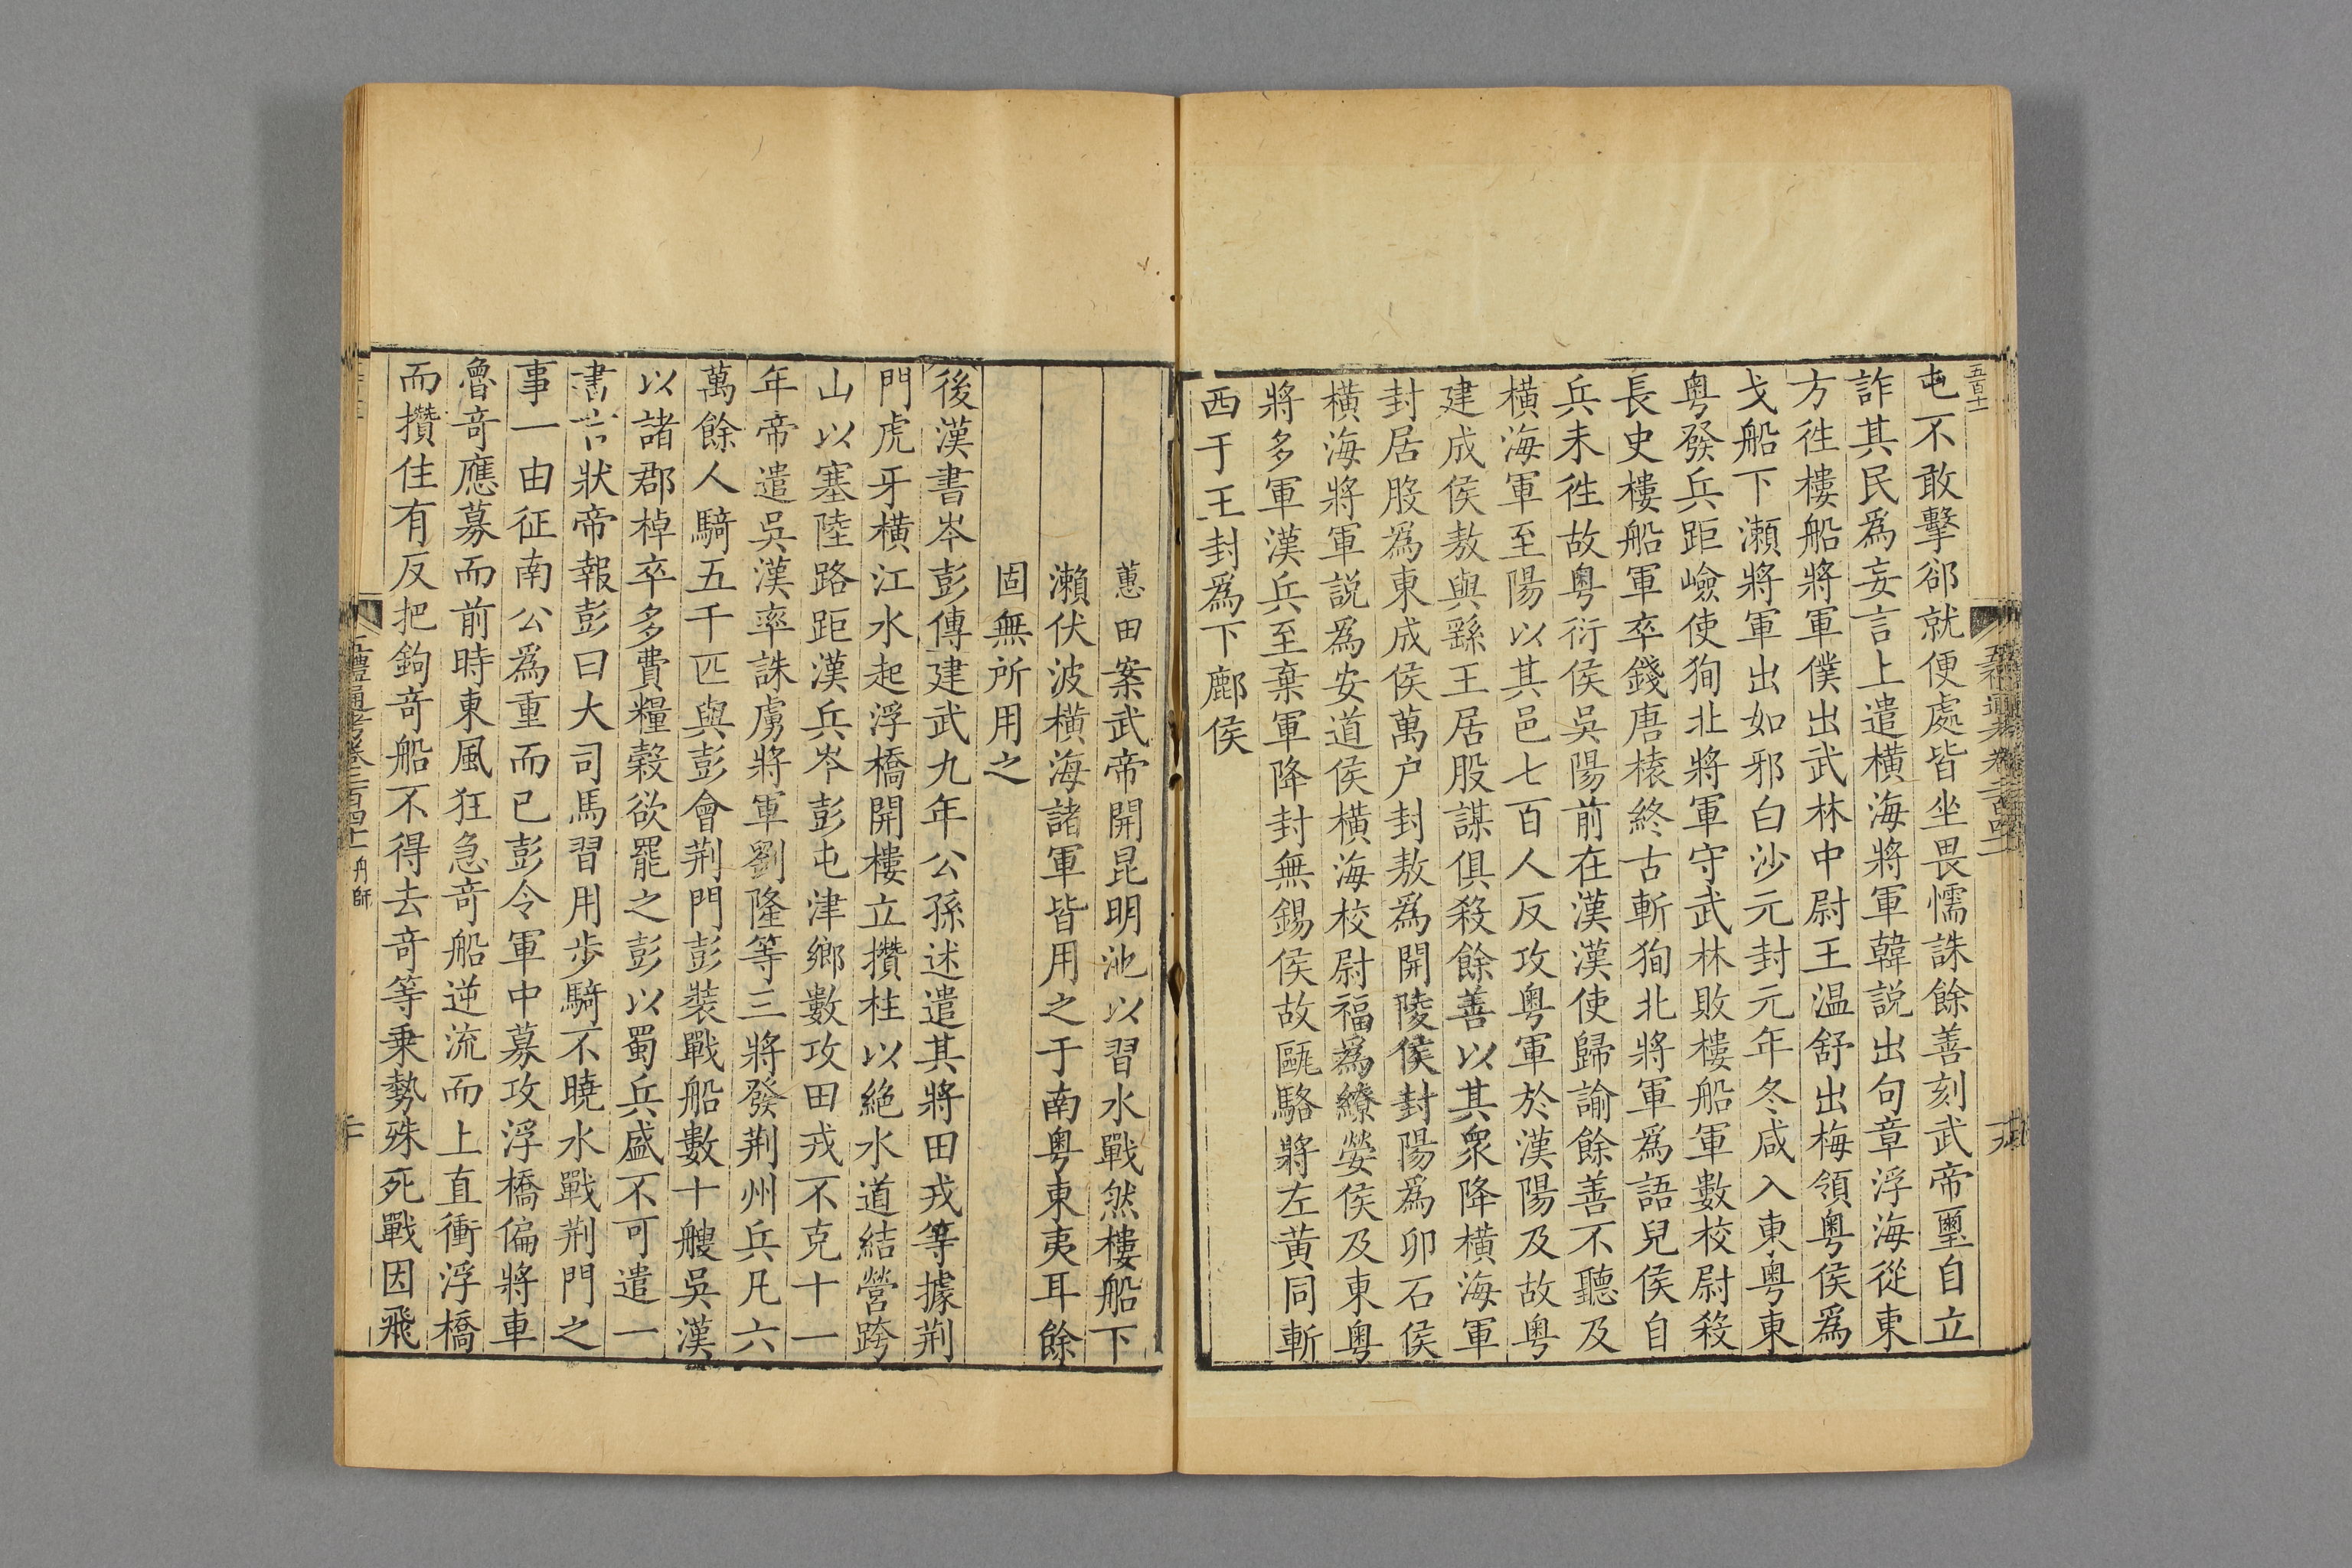 五百十一
屯不敢擊郤就便處皆坐畏懦誅餘善刻武帝璽自立
詐其民爲妄言上遣横海將軍韓説出句章浮海從東
方徃樓船將軍僕出武林中尉王温舒出梅領粤侯爲
戈船下瀬將軍出如邪白沙元封元年冬咸入東粤東
粤發兵距嶮使狥北將軍守武林敗樓船軍數校尉殺
長史樓船軍卒錢唐榬終古斬狥北將軍爲語兒侯自
兵未徃故粤衍侯吳陽前在漢漢使歸諭餘善不聽及
橫海軍至陽以其邑七百人反攻粤軍於漢陽及故粤
建成侯敖與繇王居股謀俱殺餘善以其衆降橫海軍
封居股爲東成侯萬户封敖爲開陵侯封陽爲卯石侯
橫海將軍説爲安道侯橫海校尉福爲繚嫈侯及東粤
將多軍漢兵至棄軍降封無錫侯故甌駱將左黄同斬
西于王封爲下鄜侯
蕙田案武帝開昆明池以習水戰然樓船下
瀨伏波橫海諸軍皆用之于南粤東夷耳餘
固無所用之
後漢書岑彭傳建武九年公孫述遣其將田戎等據荆
門虎牙橫江水起浮橋開樓立攢柱以絶水道結營跨
山以塞陸路距漢兵岑彭屯津鄉數攻田戎不克十一
年帝遣吳漢率誅虜將軍劉隆等三將發荆州兵凡六
萬餘人騎五千匹與彭會荆門彭裝戰船數十艘吳漢
以諸郡棹卒多費糧穀欲罷之彭以蜀兵盛不可遣一
書言狀帝報彭曰大司馬習用步騎不曉水戰荆門之
事一由征南公爲重而已彭令軍中募攻浮橋偏將車
魯奇應募而前時東風狂急奇船逆流而上直衝浮橋
而攢住有反把鉤奇船不得去奇等乗勢殊死戰因飛
五禮通考卷二百四十二 舟師